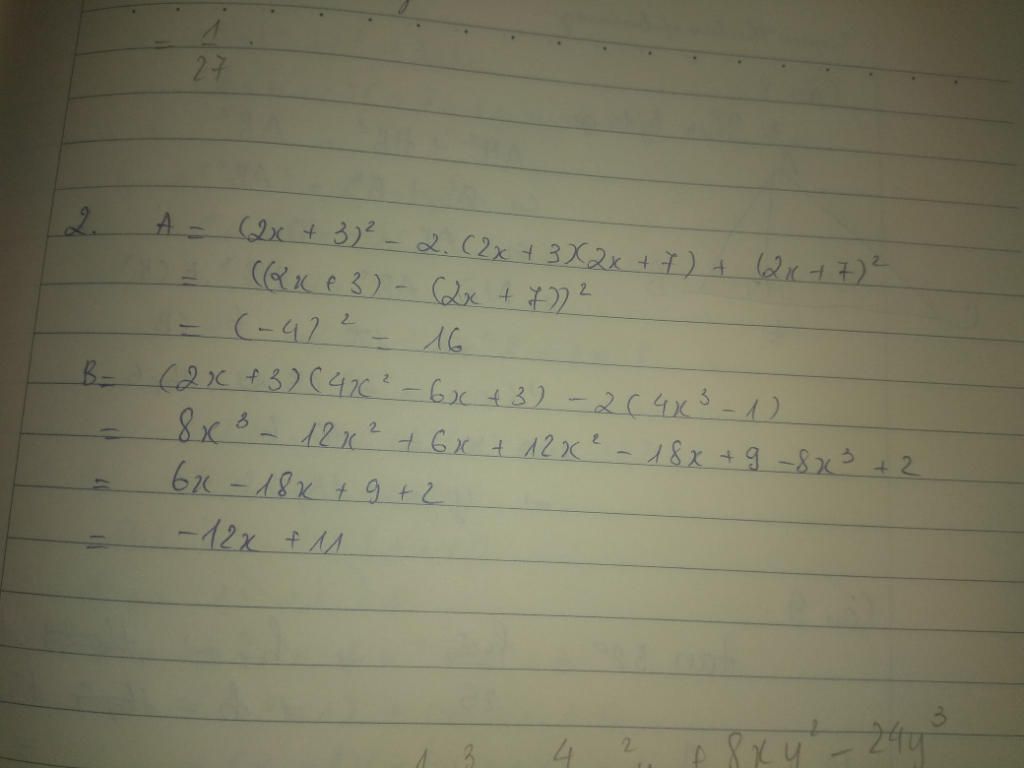 = 1/27 .
2. A = (2x + 3)² - 2.(2x + 3)(2x + 7) + (2x + 7)²
= ((2x + 3) - (2x + 7))²
= (-4)² = 16
B = (2x + 3)(4x² - 6x + 3) - 2(4x³ - 1)
= 8x³ - 12x² + 6x + 12x² - 18x + 9 - 8x³ + 2
= 6x - 18x + 9 + 2
= -12x + 11
+ 8xy² - 24y³